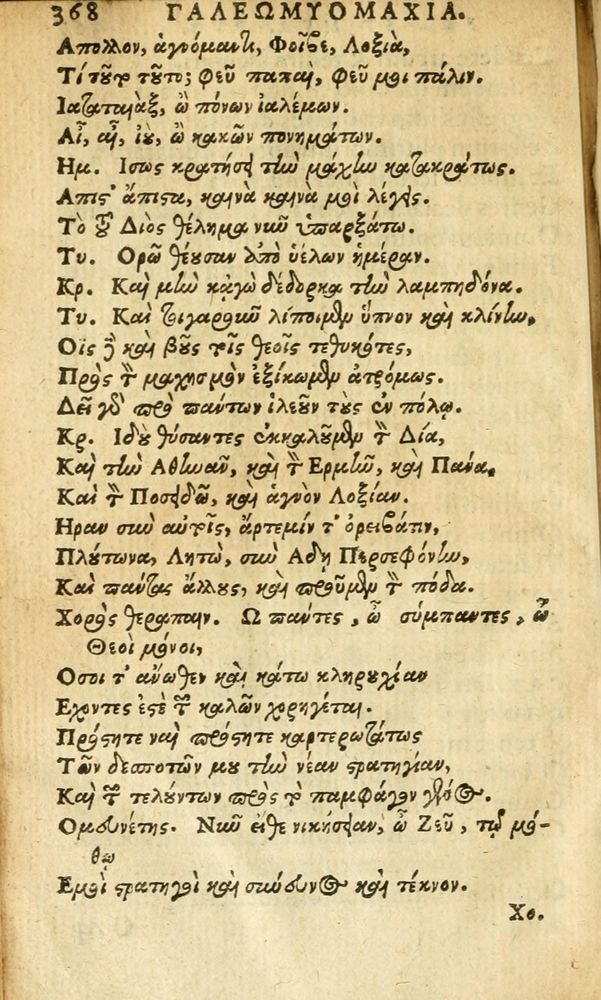 368 ΓΑΛΕΩΜΥΟΜΑΧΙΑ.
Απολλον, ἁγνόμαντι, Φοῖβε, Λοξία,
Τί τοῦτο τοῦτο; φεῦ παπαὶ, φεῦ μοι πάλιν.
Ιαταταιὰξ, ὢ πόνων ἰαλέμων.
Αἶ, αἶ, ἰοὺ, ὢ κακῶν πονημάτων.
Ημ. Ισως κρατήσει τὴν μάχην κατακράτως.
Απιστ' ἄπιστα, καινὰ καινὰ μοὶ λέγεις.
Τὸ τοῦ Διὸς θέλημα νῦν ὑπαρξάτω.
Τυ. Ορῶ θέουσαν ἀπὸ ὑέλων ἡμέραν.
Κρ. Καὶ μὴν κᾀγὼ δέδορκα τὴν λαμπηδόνα.
Τυ. Καὶ τιγαροῦν λίποιμεν ὕπνον καὶ κλίνην,
Οἷς δὲ καὶ βοῦς τοῖς θεοῖς τεθυκότες,
Πρὸς τὸν μαχησμὸν ἐξίκωμεν ἀτρόμως.
Δεῖ γὰρ πρὸ πάντων ἱλεοῦν τοὺς ἐν πόλῳ.
Κρ. Ιδοὺ θύσαντες ἐκκαλοῦμεν τὸν Δία,
Καὶ τὴν Αθηνᾶν, καὶ τὸν Ερμῆν, καὶ Πᾶνα,
Καὶ τὸν Ποσειδῶ, καὶ ἁγνὸν Λοξίαν.
Ηραν σὺν αὐτοῖς, ἄρτεμίν τ' ὀρειβάτιν,
Πλούτωνα, Λητὼ, σὺν Αδῃ Περσεφόνην,
Καὶ πάντας ἄλλους, καὶ προῦμεν τὸν πόδα.
Χορὸς θεραπαιν. Ω πάντες, ὦ σύμπαντες, ὦ
Θεοὶ μόνοι,
Οσοι τ' ἄνωθεν καὶ κάτω κληρουχίαν
Εχοντες ἐστὲ τῶν καλῶν χορηγέται.
Πρόσχητε ναὶ πρόσχητε καρτερωτάτως
Τῶν δεσποτῶν μου τὴν νέαν στρατηγίαν,
Καὶ τῶν τελούντων πρὸς τὸ παμφάγον γένος.
Ομευνέτης. Νῦν εἴθε νικήσειαν, ὦ Ζεῦ, τῷ μό-
θῳ
Εμοὶ στρατηγοὶ καὶ σύνευνος καὶ τέκνον.
Χο.